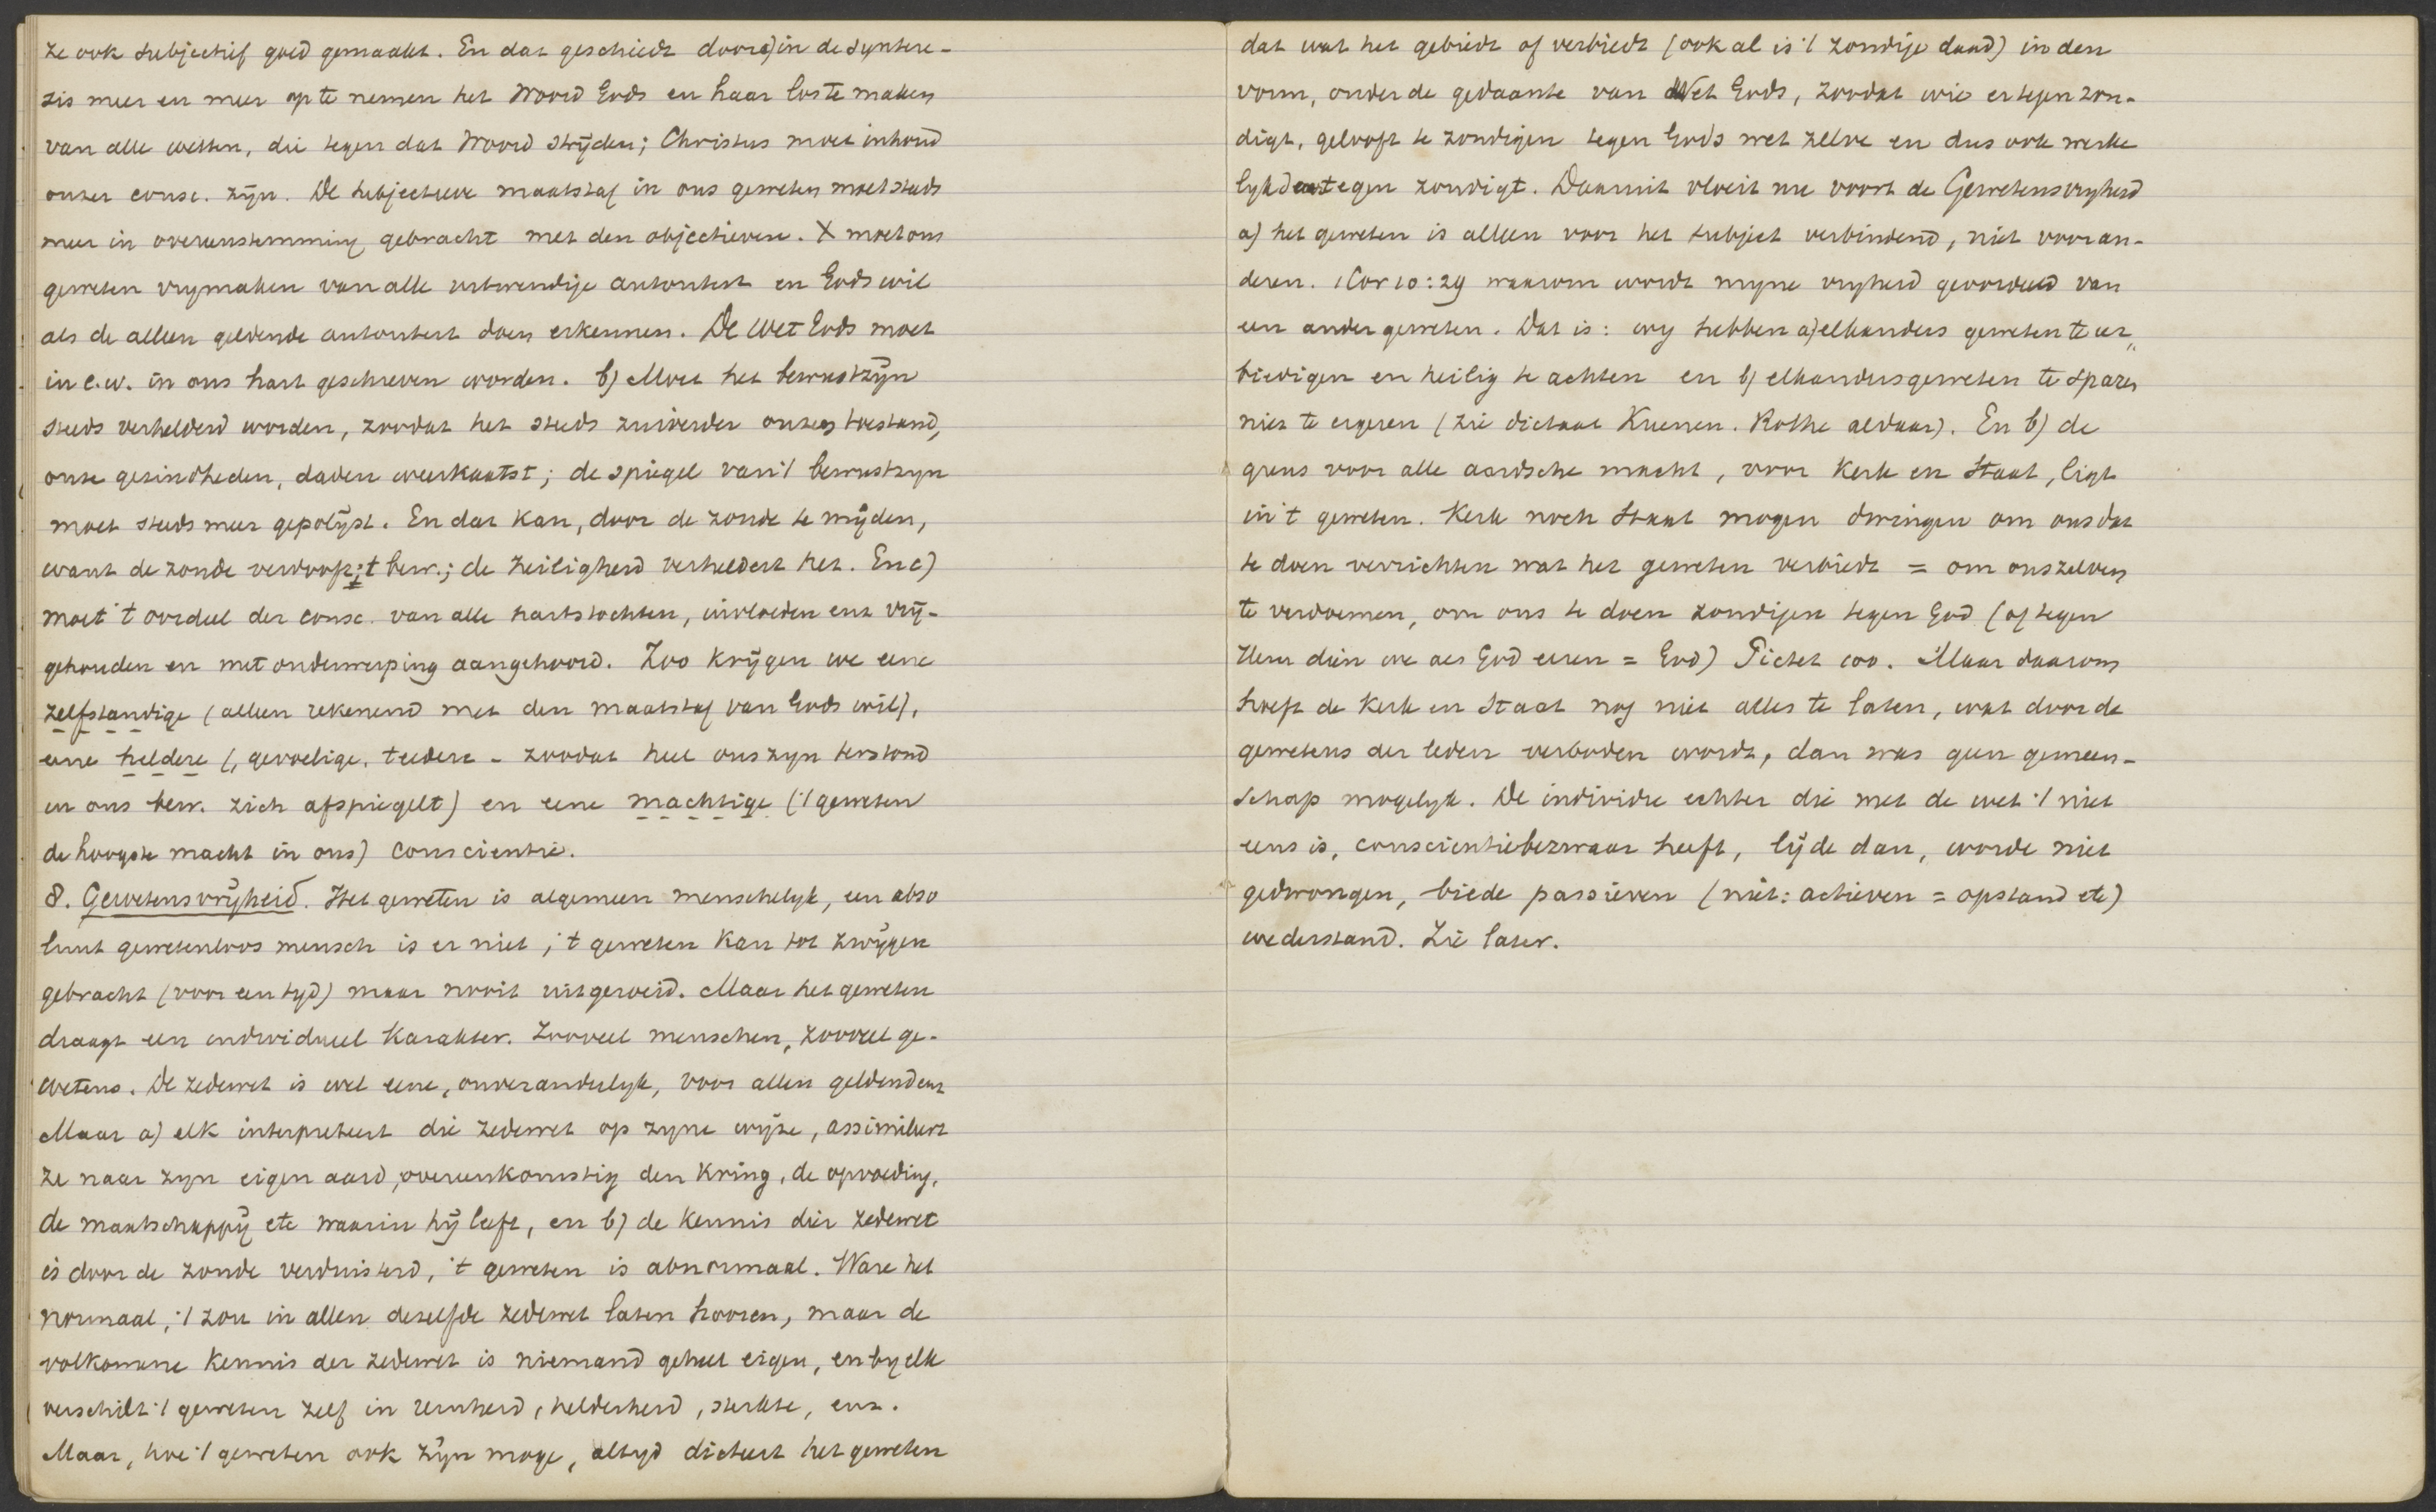 ze ook subjectief goed gemaakt. En dat geschiedt door a) in de syntere-
sis meer en meer op te nemen het Woord Gods en haar los te maken
van alle wetten, die tegen dat Woord strijden; Christus moet inhoud
onzer consc. zijn. De subjectieve maatstaf in ons geweten moet steeds
meer in overeenstemming gebracht met den objectieven. X moet ons
geweten vrymaken van alle uitwendige autoriteit en Gods wil
als de alleen geldende autoriteit doen erkennen. De wet Gods moet
in e.w. in ons hart geschreven worden. b) Moet het bewustzijn
steeds verhelderd worden, zoodat het steeds zuiverder onzen toestand,
onze gezindheden, daden weerkaatst; de spiegel van 't bewustzyn
moet steeds meer gepolijst. En dat kan, door de zonde te mijden,
want de zonde verdooft 't bew.; de heiligheid verheldert het. En c)
moet 't oordeel der consc. van alle hartstochten, invloeden enz vrij-
gehouden en met onderwerping aangehoord. Zoo krijgen we eene
zelfstandige (alleen rekenend met den maatstaf van Gods wil),
eene heldere (, gevoelige, teedere - zoodat heel ons zyn terstond
in ons bew. zich afspiegelt) en eene machtige ('t geweten
de hoogste macht in ons) conscientie.
8. Gewetensvrijheid. Het geweten is algemeen menschelyk, een abso
luut gewetenloos mensch is er niet, 't geweten kan tot zwijgen
gebracht (voor een tyd) maar nooit uitgeroeid. Maar het geweten
draagt een individueel karakter. Zooveel menschen, zooveel ge-
wetens. De zedewet is wel eene, onveranderlyk, voor allen geldend enz
Maar a) elk interpreteert die zedewet op zyne wijze, assimileert
ze naar zyn eigen aard, overeenkomstig den kring, de opvoeding,
de maatschappij etc waarin hij leeft, en b) de kennis dier zedewet
is door de zonde verduisterd, 't geweten is abnormaal. Ware het
normaal, 't zou in allen dezelfde zedewet laten hooren, maar de
volkomene kennis der zedewet is niemand geheel eigen, en by elk
verschilt 't geweten zelf in reinheid, helderheid, sterkte, enz.
Maar, hoe 't geweten ook zijn moge, altyd dicteert het geweten
dat wat het gebiedt of verbiedt (ook al is 't zondige daad) in den
vorm, onder de gedaante van Wet Gods, zoodat wie er tegen zon-
digt, gelooft te zondigen tegen Gods wet zelve en dus ook werke
lyk daartegen zondigt. Daaruit vloeit nu voort de Gewetensvryheid
a) het geweten is alleen voor het subject verbindend, niet voor an-
deren. 1 Cor 10:29 waarom wordt myne vryheid geoordeeld van
een ander geweten. Dat is: wy hebben a) elkanders geweten te eer„
biedigen en heilig te achten en b) elkanders geweten te sparen
niet te ergeren (zie dictaat Kuenen. Rothe aldaar). En b) de
grens voor alle aardsche macht, voor Kerk en Staat, ligt
in 't geweten. Kerk noch Staat mogen dwingen om ons dat
te doen verrichten wat het geweten verbiedt = om onszelven
te verdoemen, om ons te doen zondigen tegen God (of tegen
Hem dien we als God eeren = God) Pictet 100. Maar daarom
hoeft de Kerk en Staat nog niet alles te laten, wat door de
gewetens der leden verboden wordt, dan was geen gemeen-
schap mogelyk. De individu echter die met de wet 't niet
eens is, conscientiebezwaar heeft, lijde dan, worde niet
gedwongen, biede passieven (niet: actieven = opstand etc)
wederstand. Zie later.